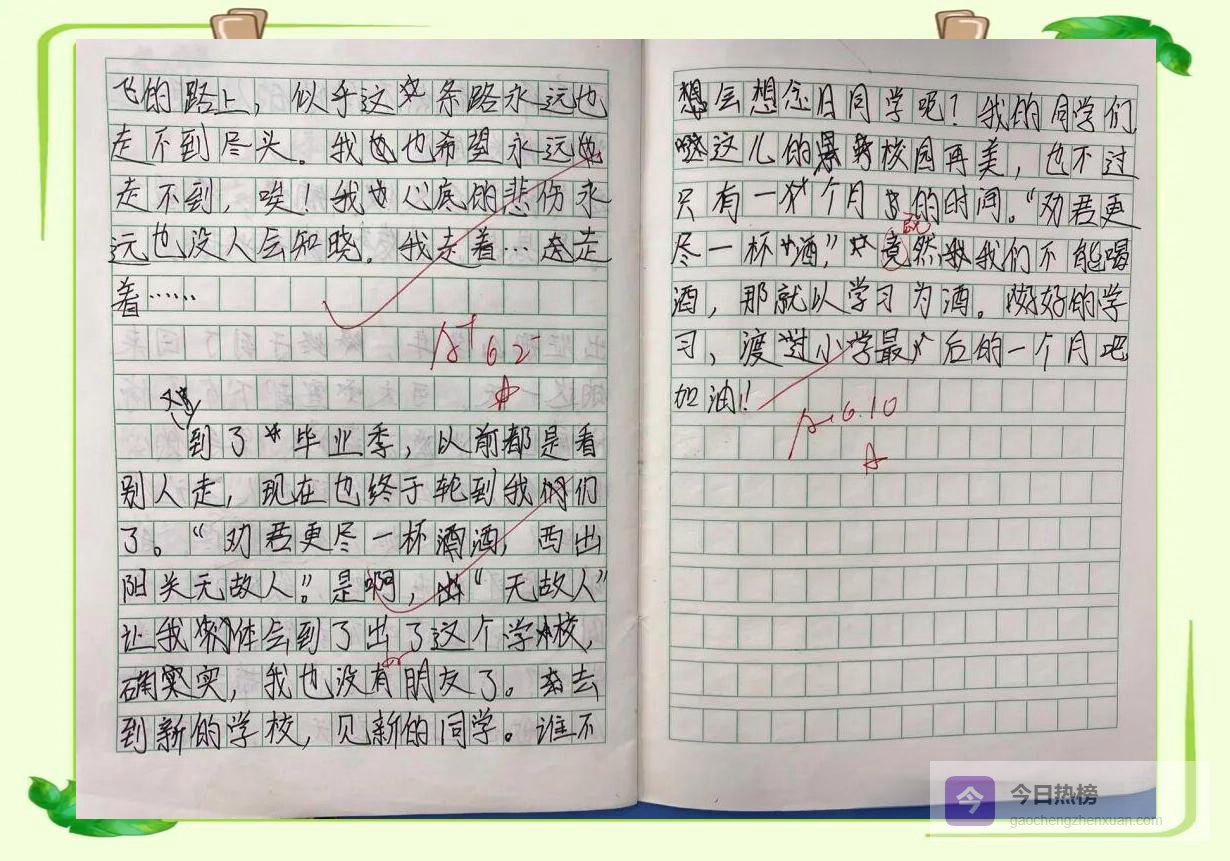 飞的路上，似乎这条路永远也
走不到尽头。我也希望永远也
走不到，唉！我心底的悲伤永
远也没人会知晓。我走着…走
着……
A+ 6.2
又
到了毕业季，以前都是看
别人走，现在也终于轮到我们
了。“劝君更尽一杯酒，西出
阳关无故人”。是啊，“无故人”
让我体会到了出了这个学校，
确实，我也没有朋友了。去
到新的学校，见新的同学。谁不
会想念旧同学呢？我的同学们
这儿的校园再美，也不过
只有一个月的时间。“劝君更
既
尽一杯酒，”竟然我们不能喝
酒，那就以学习为酒。好好的学
习，渡过小学最后的一个月吧
加油！！
A. 6.10
今
今日热榜
gaochengzhenxuan.com